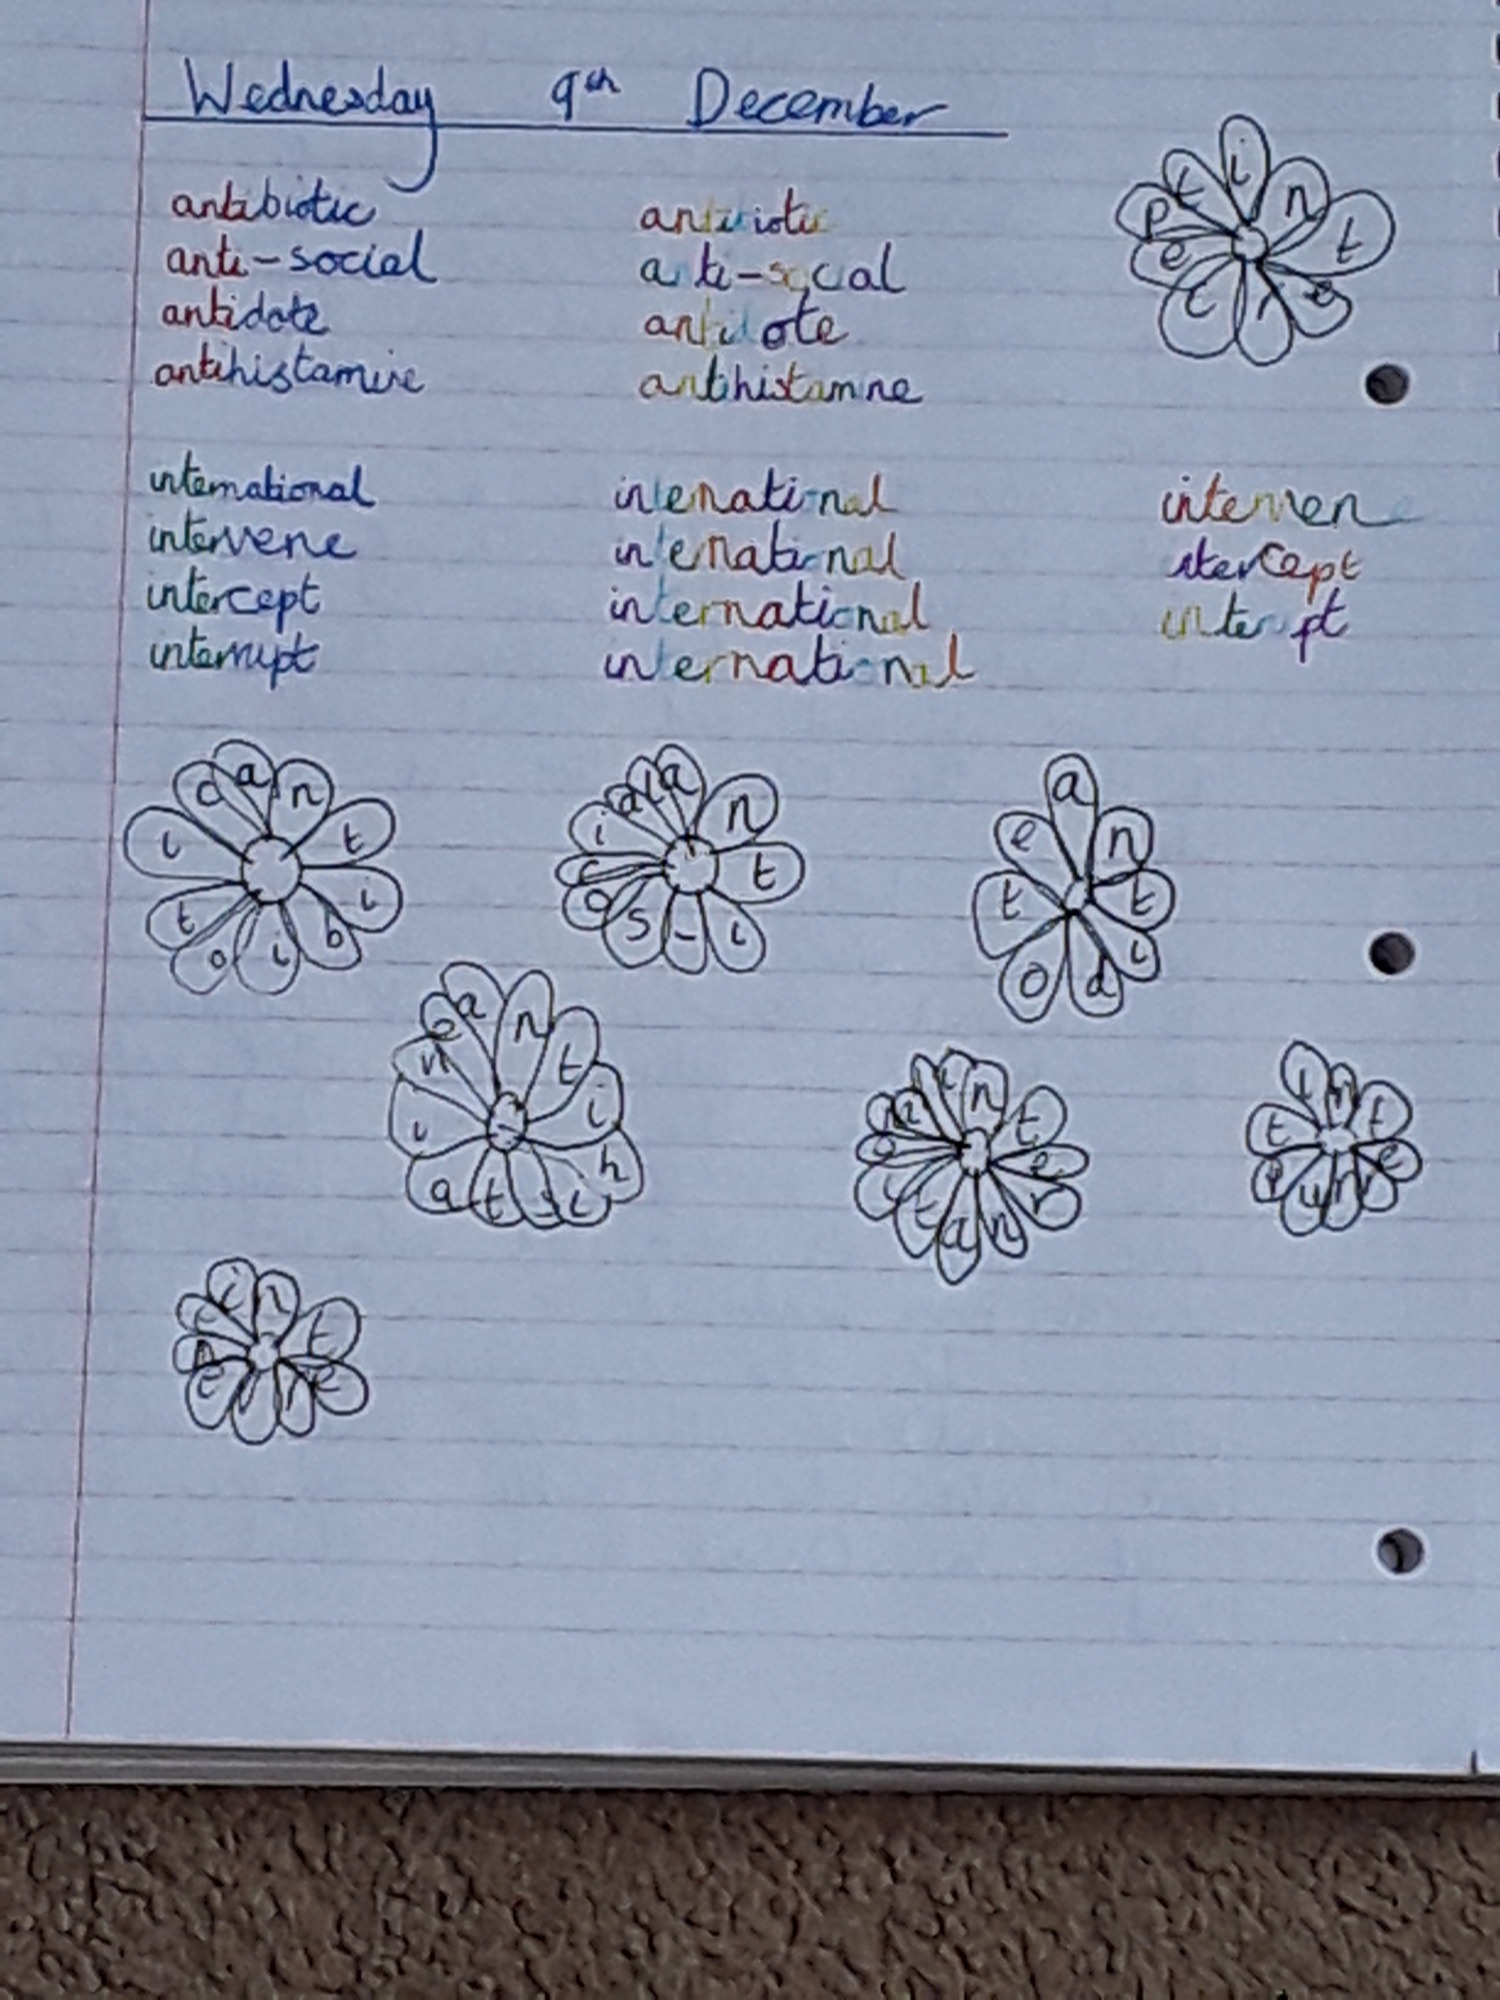 Wednesday 9th December
antibiotic antibiotic
anti-social anti-social
antidote antidote
antihistamine antihistamine
international international intervene
intervene international intercept
intercept international interrupt
interrupt international
i n t e r c e p t
a n t i b i o t i c
a n t i - s o c i a l
a n t i d o t e
a n t i h i s t a m i n e
i n t e r n a t i o n a l
i n t e r r u p t